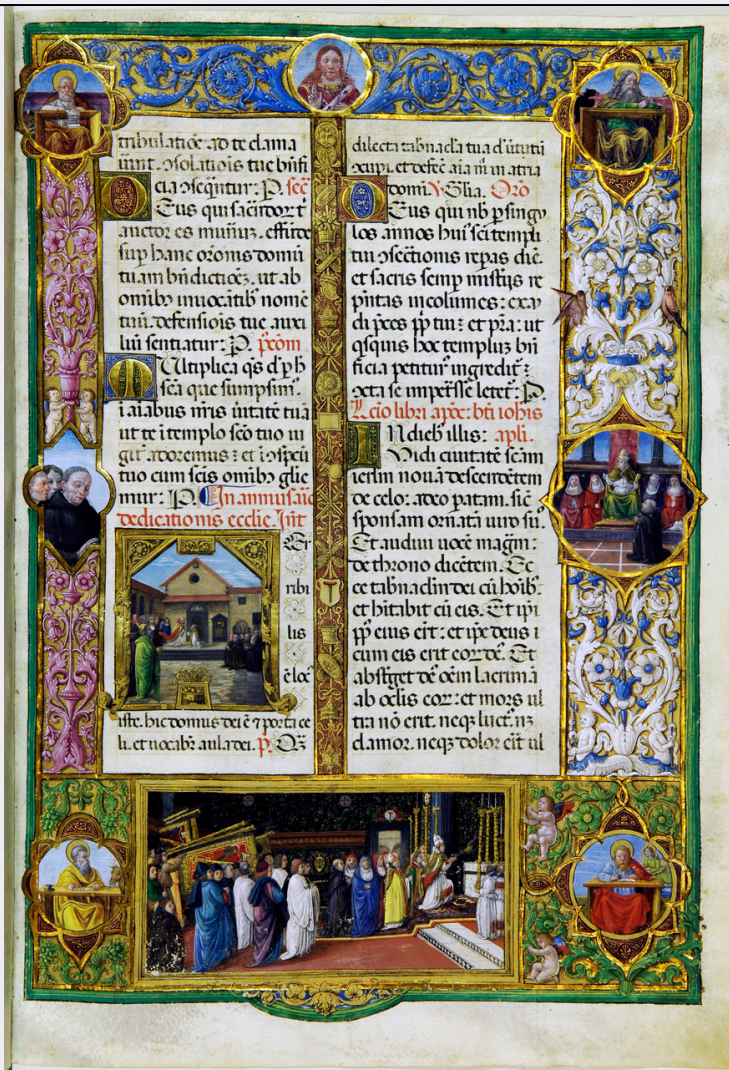 tribulatiõe ad te clama
uerint. ɔsolatiõis tue bñfi
cia ɔseq̃ntur: P. secr̃
Deus qui sacrãdor̃ t
auctor es munẽr. effũde
sup hanc orõnis domũ
tuam bñdictiõez. ut ab
omĩbꝫ inuocãtibꝫ nomẽ
tuũ. defensiõis tue auxi
liũ sentiatur: P. pꝰcom̃
Multiplica qs dñe p h
sc̃a que sumpsim̃.
ĩ aĩabus nr̃is ũitatẽ tuã
ut te ĩ templo sc̃o tuo iu
git̃ adoremus: et ĩ ɔspcũ
tuo cum scĩs omĩbꝫ glie
mur: P. In anniusariõ
dedicationis ecclie. Int̃
Ter
ribi
lis
ẽ loc
iste. hic domus dei ẽ ⁊ porta ce
li. et uocabr̃ aula dei. p̃. Q̃
dilecta tab̃nacl̃a tua d̃ ũtutũ
ɔcupı. et defec̃ aĩa m̃ in atria
domı̃ V. Gl̃ia. Orõ
Deus qui nb̃ p singu
los annos huiꝰ sc̃i templi
tui ɔsecr̃tionis repas diẽ.
et sacris semp mist̃ijs re
p̃ntas incolumes: exau
di p̃ces pp̃li tui: et p̃ra: ut
q̃squis hoc templuꝫ bñ
ficia petitur̃ ingredit̃:
ɔcta se imper̃sse letet̃: P.
Lc̃io libri apoc̃: bt̃i iohis
In dieb illis: apl̃i.
Vidi ciuitatẽ sc̃am
ier̃lm nouã descendẽtem
de celo: a deo patam. sic̃
sponsam ornatã uiro suo.
Et audiui uocẽ magñ:
de throno dicẽtem. Ec
ce tab̃naclm̃ dei cũ hoĩbꝫ.
et hĩtabit cũ eis. Et ip̃i
pp̃ls eius er̃t: et ip̃e deus ĩ
cum eis erit eoꝝ dẽ. Et
abst̃get dẽ oẽm lacrimã
ab oc̃lis eoꝝ: et mors ul
tra nõ erit. neqꝫ luctꝰ. nꝫ
clamor. neqꝫ dolor er̃t ul